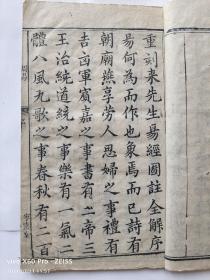 重刻来先生易經圖註全解序
易何為而作也象焉而已詩有
朝廟燕享勞人思婦之事禮有
吉凶軍賓嘉之事書有二帝三
王治純道統之事樂有一氣二
體八風九歌之事春秋有二百
vivo X60 Pro · ZEISS